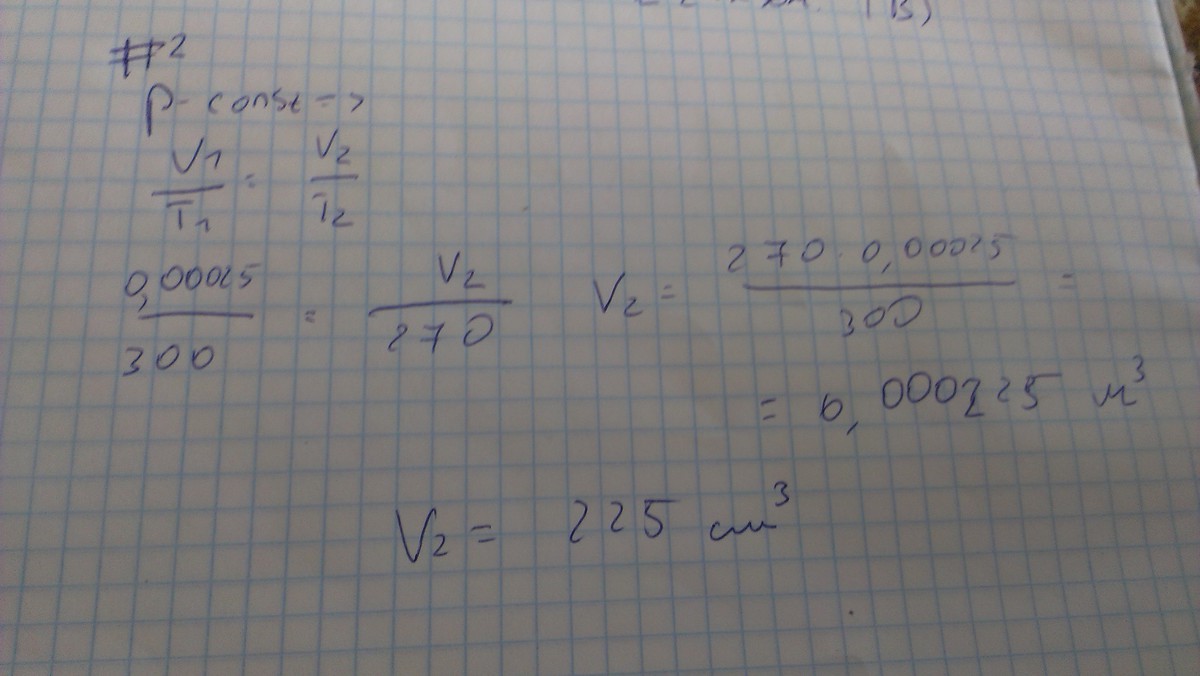 #2
p - const =>
V1/T1 = V2/T2
0,00025/300 = V2/270 V2 = 270 · 0,00025/300 =
= 0,000225 м³
V2 = 225 см³